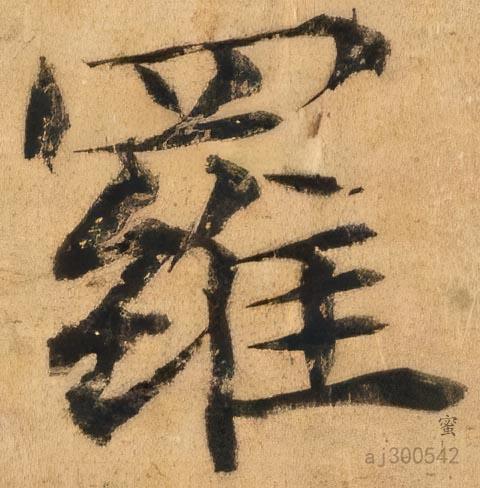 羅
蜜
aj300542